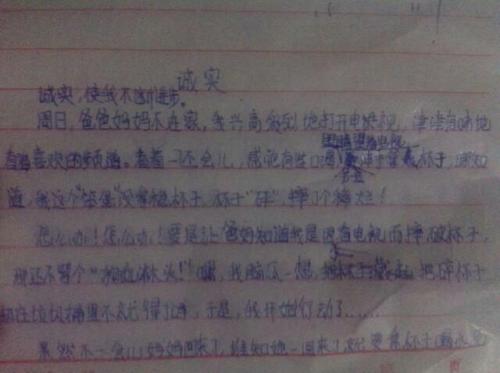 诚实
诚实，使我不断进步。
周日，爸爸妈妈不在家，我兴高采烈地打开电视，津津有味地
看着喜欢的频道。看着一还会儿，感觉有些口渴 杯子，哪知
道，我这个"笨蛋"没拿稳杯子，杯子"砰"，摔了个稀烂！
怎么办！怎么办！要是让爸妈知道我是因看电视而摔破杯子，
那还不臂个"狗血淋头！"嘿，我脑瓜一想， 把碎杯子
扔在垃圾桶里不就得了，于是，我开始行动了……
果然不一会儿妈妈回来了，谁知她一回来了 要拿杯子喝水